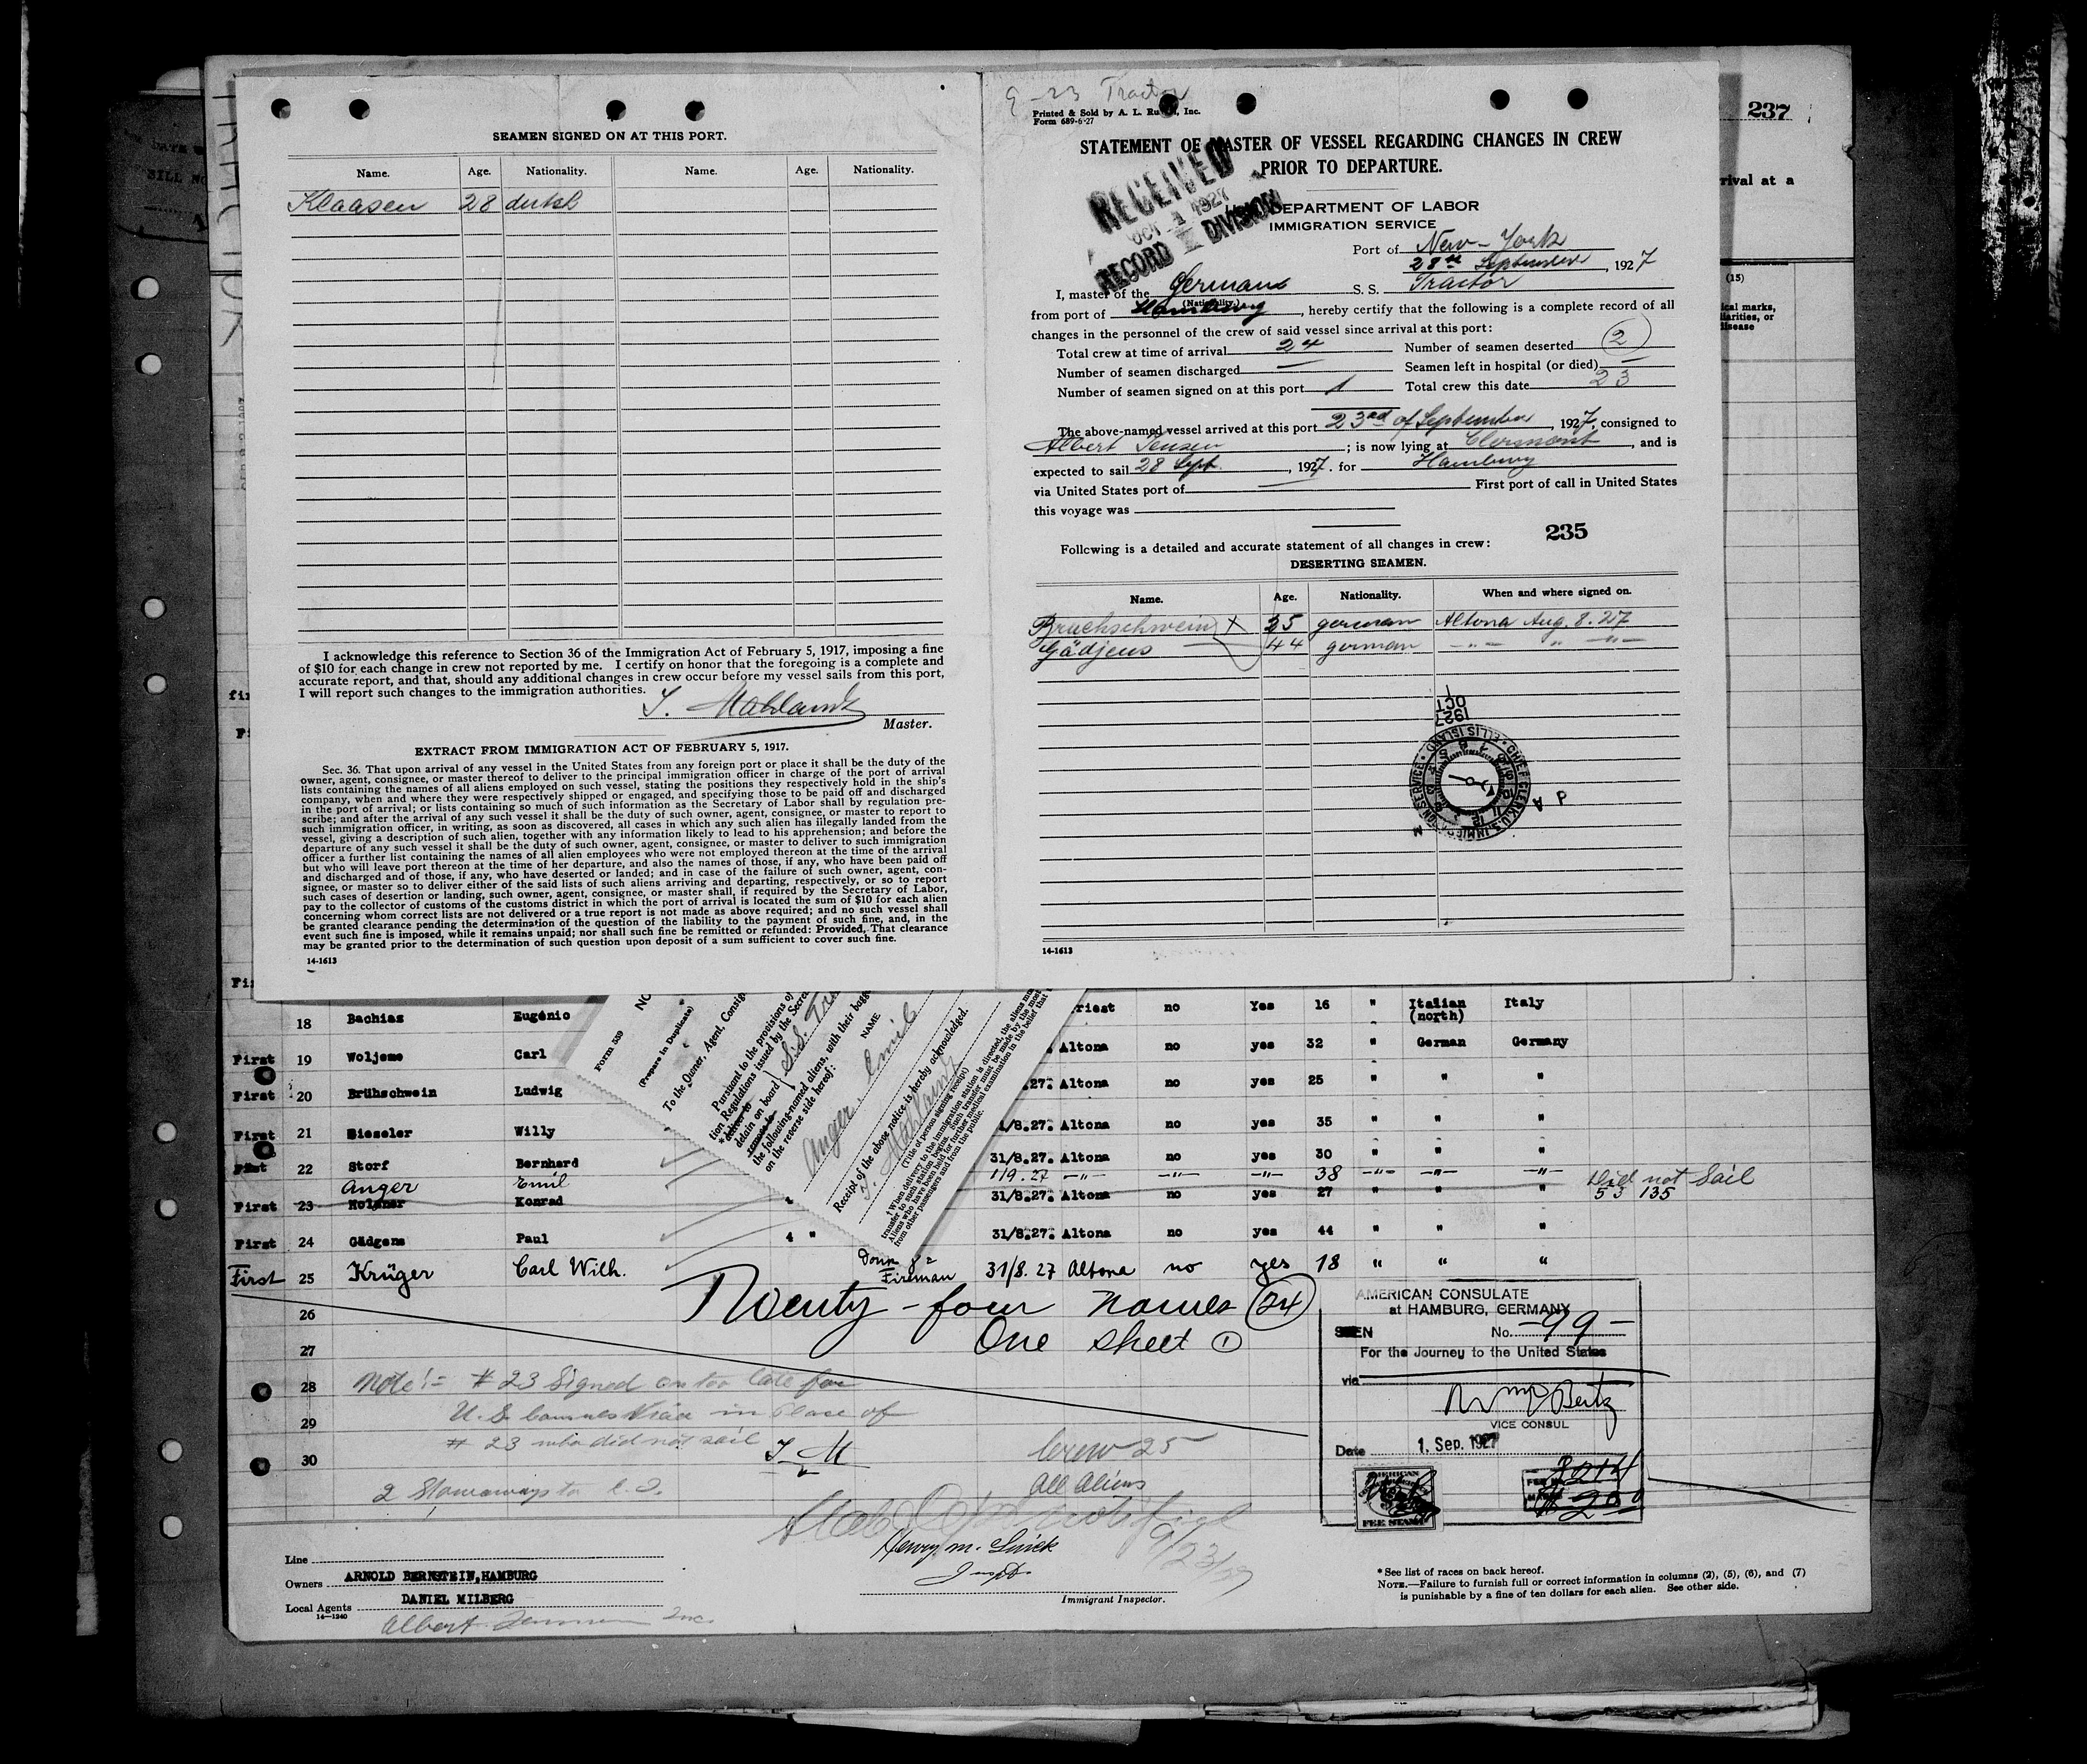 237
rival at a
(15)
ical marks,
liarities, or
disease
SEAMEN SIGNED ON AT THIS PORT.
Name. Age. Nationality. Name. Age. Nationality.
Klaasen 28 dutch
I acknowledge this reference to Section 36 of the Immigration Act of February 5, 1917, imposing a fine
of $10 for each change in crew not reported by me. I certify on honor that the foregoing is a complete and
accurate report, and that, should any additional changes in crew occur before my vessel sails from this port,
I will report such changes to the immigration authorities.
Master.
EXTRACT FROM IMMIGRATION ACT OF FEBRUARY 5, 1917.
Sec. 36. That upon arrival of any vessel in the United States from any foreign port or place it shall be the duty of the
owner, agent, consignee, or master thereof to deliver to the principal immigration officer in charge of the port of arrival
lists containing the names of all aliens employed on such vessel, stating the positions they respectively hold in the ship's
company, when and where they were respectively shipped or engaged, and specifying those to be paid off and discharged
in the port of arrival; or lists containing so much of such information as the Secretary of Labor shall by regulation pre-
scribe; and after the arrival of any such vessel it shall be the duty of such owner, agent, consignee, or master to report to
such immigration officer, in writing, as soon as discovered, all cases in which any such alien has illegally landed from the
vessel, giving a description of such alien, together with any information likely to lead to his apprehension; and before the
departure of any such vessel it shall be the duty of such owner, agent, consignee, or master to deliver to such immigration
officer a further list containing the names of all alien employees who were not employed thereon at the time of the arrival
but who will leave port thereon at the time of her departure, and also the names of those, if any, who have been paid off
and discharged and of those, if any, who have deserted or landed; and in case of the failure of such owner, agent, con-
signee, or master so to deliver either of the said lists of such aliens arriving and departing, respectively, or so to report
such cases of desertion or landing, such owner, agent, consignee, or master shall, if required by the Secretary of Labor,
pay to the collector of customs of the customs district in which the port of arrival is located the sum of $10 for each alien
concerning whom correct lists are not delivered or a true report is not made as above required; and no such vessel shall
be granted clearance pending the determination of the question of the liability to the payment of such fine, and, in the
event such fine is imposed, while it remains unpaid; nor shall such fine be remitted or refunded: Provided, That clearance
may be granted prior to the determination of such question upon deposit of a sum sufficient to cover such fine.
14-1613
9-23 Tractor
Printed & Sold by A. L. Inc.
Form 689-6-27
STATEMENT OF MASTER OF VESSEL REGARDING CHANGES IN CREW
PRIOR TO DEPARTURE.
RECEIVED
OCT 1 1927
RECORD DIVISION
DEPARTMENT OF LABOR
IMMIGRATION SERVICE
Port of New-York
28th September, 1927
I, master of the German S. S. Tractor
(Nationality.)
from port of Hamburg, hereby certify that the following is a complete record of all
changes in the personnel of the crew of said vessel since arrival at this port:
Total crew at time of arrival 24 Number of seamen deserted 2
Number of seamen discharged — Seamen left in hospital (or died) —
Number of seamen signed on at this port 1 Total crew this date 23
The above-named vessel arrived at this port 23rd of September, 1927, consigned to
Albert Jensen; is now lying at Clermont, and is
expected to sail 28 Sept., 1927. for Hamburg
via United States port of — First port of call in United States
this voyage was
235
Following is a detailed and accurate statement of all changes in crew:
DESERTING SEAMEN.
Name. Age. Nationality. When and where signed on.
Bruchschwein X 25 german Altona Aug. 8. 27
Gädjens 44 german —"— " —"—
OCT 1 1927
CHIEF CLERK, U.S. IMMIGRATION SERVICE • ELLIS ISLAND
14-1613
Form 539
(Prepare in Duplicate)
To the Owner, Agent, Consig
Pursuant to the provisions of
tion Regulations issued by the Secre
*deliver to
detain on board S.S. Tra
remove to
the following-named aliens, with their bagg
on the reverse side hereof:
NAME
Anger, Emil
Receipt of the above notice is hereby acknowledged.
(Title of person signing receipt)
18 Bachias Eugénio riest no Yes 16 " Italian (north) Italy
First 19 Woljeme Carl Altona no yes 32 " German Germany
First 20 Brühschwein Ludwig .27. Altona no yes 25 " " "
First 21 Sieseler Willy 1/8.27. Altona no yes 35 " " "
First 22 Storf Bernhard 31/8.27. Altona no yes 30 " " "
Anger Emil 1/9.27 —"— —"— —"— 38 —"— —"— —"—
First 23 Konrad 31/8.27. Altona no yes 27 " " " Did not Sail
53 135
First 24 Gädgens Paul 4 " 31/8.27. Altona no yes 44 " " "
First 25 Krüger Carl Wilh. Fireman 31/8.27 Altona no yes 18 " " "
26
27
28
29
30
Twenty-four names (24)
One sheet (1)
Note:- #23 Signed on too late for
U.S. Consuls Visa in Place of
#23 who did not sail
2 Stowaways to E.I.
Crew 25
All Aliens
9/23/27
AMERICAN CONSULATE
at HAMBURG, GERMANY
SEEN No. -99-
For the Journey to the United States
via
VICE CONSUL
Date 1. Sep. 1927
FEE STAMP
Line
Owners ARNOLD BERNSTEIN, HAMBURG
Local Agents DANIEL MILBERG
14-1240
Immigrant Inspector.
* See list of races on back hereof.
NOTE.—Failure to furnish full or correct information in columns (2), (5), (6), and (7)
is punishable by a fine of ten dollars for each alien. See other side.